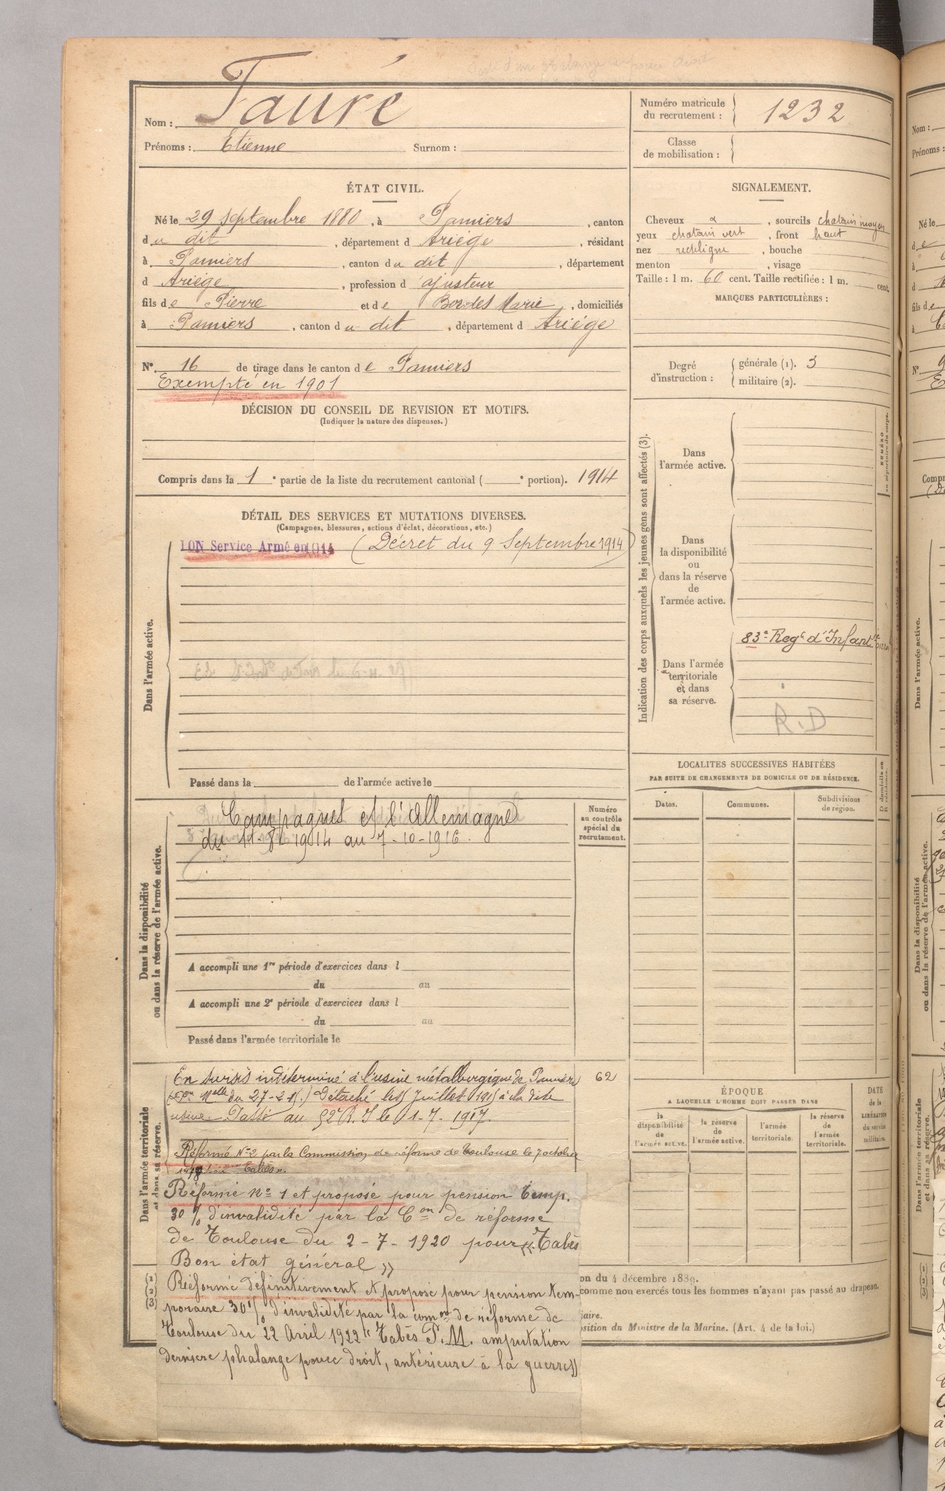 Nom : Fauré
Prénoms : Etienne Surnom :
Numéro matricule du recrutement : 1232
Classe de mobilisation :
ÉTAT CIVIL.
Né le 29 septembre 1880, à Pamiers, canton
du dit, département d Ariége, résidant
à Pamiers, canton du dit, département
d Ariége, profession d ajusteur
fils de Pierre et de Bordes Marie, domiciliés
à Pamiers, canton du dit, département d Ariége
N° 16 de tirage dans le canton de Pamiers
Exempté en 1901
SIGNALEMENT.
Cheveux , sourcils chatain moyen
yeux chatain vert, front haut
nez rectiligne, bouche
menton , visage
Taille : 1 m. 60 cent. Taille rectifiée : 1 m. cent.
MARQUES PARTICULIÈRES :
Degré d'instruction : générale (1). 3
militaire (2).
DÉCISION DU CONSEIL DE REVISION ET MOTIFS.
(Indiquer la nature des dispenses.)
Compris dans la 1e partie de la liste du recrutement cantonal ( e portion). 1914
DÉTAIL DES SERVICES ET MUTATIONS DIVERSES.
(Campagnes, blessures, actions d'éclat, décorations, etc.)
Dans l'armée active.
Service Armé en 1914 (Décret du 9 Septembre 1914)
Passé dans la de l'armée active le
Indication des corps auxquels les jeunes gens sont affectés (3).
Dans l'armée active.
Dans la disponibilité ou dans la réserve de l'armée active.
Dans l'armée territoriale et dans sa réserve.
83e Regt d'Infant
R.D
LOCALITÉS SUCCESSIVES HABITÉES
PAR SUITE DE CHANGEMENTS DE DOMICILE OU DE RÉSIDENCE.
Dates. Communes. Subdivisions de région.
Dans la disponibilité ou dans la réserve de l'armée active.
Campagnes
au 7-10-1916
Numéro au contrôle spécial du recrutement.
A accompli une 1re période d'exercices dans l
du au
A accompli une 2e période d'exercices dans l
du au
Passé dans l'armée territoriale le
Dans l'armée territoriale et dans sa réserve.
En sursis indéterminé à l'usine métallurgique de Pamiers 62
Détaché le Juillet 1915 à la dite
usine. Passé au R.I le 1-7-1917
Réformé N° 2 par la Commission de réforme de Toulouse le 7 octobre
Réformé n° 1 et proposé pour pension temp.
30 % d'invalidité par la Con de réforme
de Toulouse du 2-7-1920 pour « Tabès
Bon état général »
Réformé définitivement et proposé pour pension tem-
poraire 30 % d'invalidité par la comon de réforme de
Toulouse du 22 Avril 1922 « Tabès P.M. amputation
dernière phalange pouce droit, antérieure à la guerre »
ÉPOQUE
A LAQUELLE L'HOMME DOIT PASSER DANS
la disponibilité de l'armée active.
la réserve de l'armée active.
l'armée territoriale.
la réserve de l'armée territoriale.
DATE de la LIBÉRATION du service militaire.
(1)
(2)
(3)
on du 4 décembre 1889.
comme non exercés tous les hommes n'ayant pas passé au drapeau.
aire.
sition du Ministre de la Marine. (Art. 4 de la loi.)